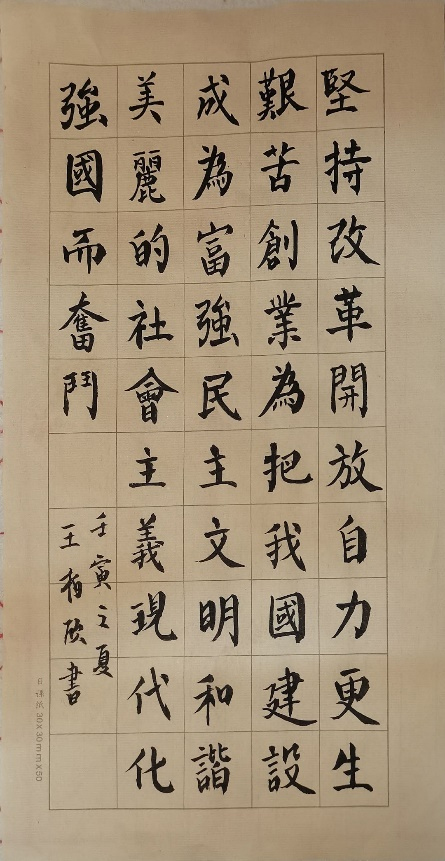 堅持改革開放自力更生
艱苦創業為把我國建設
成為富強民主文明和諧
美麗的社會主義現代化
強國而奮鬥
壬寅之夏
王 欣書
30x30mmx50